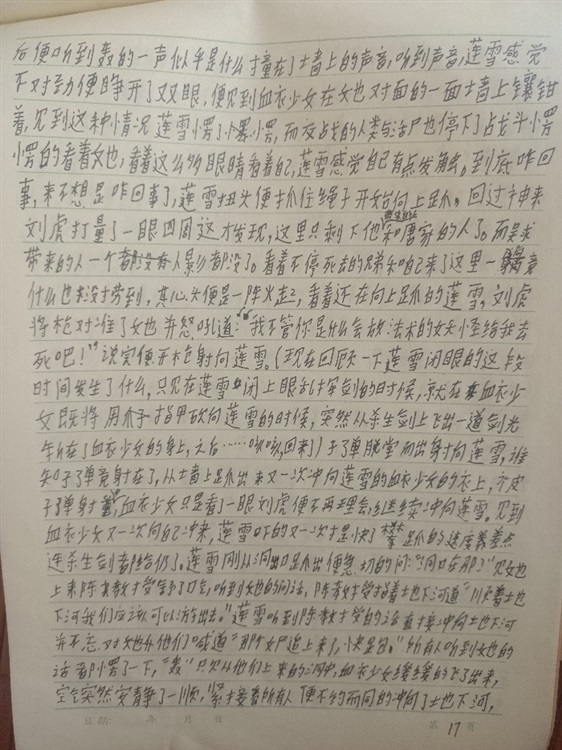 后便听到轰的一声似乎是什么撞在了墙上的声音,听到声音,莲雪感觉
不对劲便睁开了双眼,便见到血衣少女在她对面的一面墙上镶钳
着,见到这种情况莲雪愣了愣,而交战的人类与活尸也停下了战斗小愣
小愣的看着她,看着这么多眼睛看着自己,莲雪感觉自己有点发崩,到底咋回
事,来不想是咋回事了,莲雪扭头便抓住绳子开始向上爬。回过神来
刘虎打量了一眼四周这才发现,这里只剩下他和唐家的人了。而吴求
带来的人一个都没有人影都没了。看着不停死去的弟和自己来了这里一趟竟
什么也没捞到,其心头便是一阵火起,看着还在向上爬的莲雪,刘虎
将枪对准了她并怒吼道:“我不管你是什么会放法术的妖怪给我去
死吧!”说完便开枪射向莲雪。(现在回顾一下莲雪闭眼的这段
时间发生了什么,只见在莲雪闭上眼乱挥剑的时候,就在血衣少
女既将用指甲砍向莲雪的时候,突然从杀生剑上飞出一道剑光
斩在了血衣少女的身上,之后……咳咳,回来)子弹脱堂而出射向莲雪,谁
知子弹竟射在了,从墙上爬出来又一次冲向莲雪的血衣少女的衣上,
子弹射 血衣少女只是看了一眼刘虎便不再理会继续冲向莲雪。见到
血衣少女又一次向自己冲来,莲雪吓的又一次提快了攀爬的速度差点
连杀生剑都给仍了。莲雪刚从洞口爬出便急切的问:“洞口在那?”见她
上来陈教授 了口气,听到她的问话,陈教授指着地下河道“顺着地
下河我们应该可以游出去。”莲雪听到陈教授的话直接冲向地下河
并不忘对他们喊道“那个女尸追上来了,快走。”所有人听到她的
话都愣了一下,“轰”只见从他们上来的洞中,血衣少女缓缓的飞了出来,
空气突然安静了一顺,紧接着所有人便不约而同的冲向了地下河,
日期: 年 月 日 第 17 页